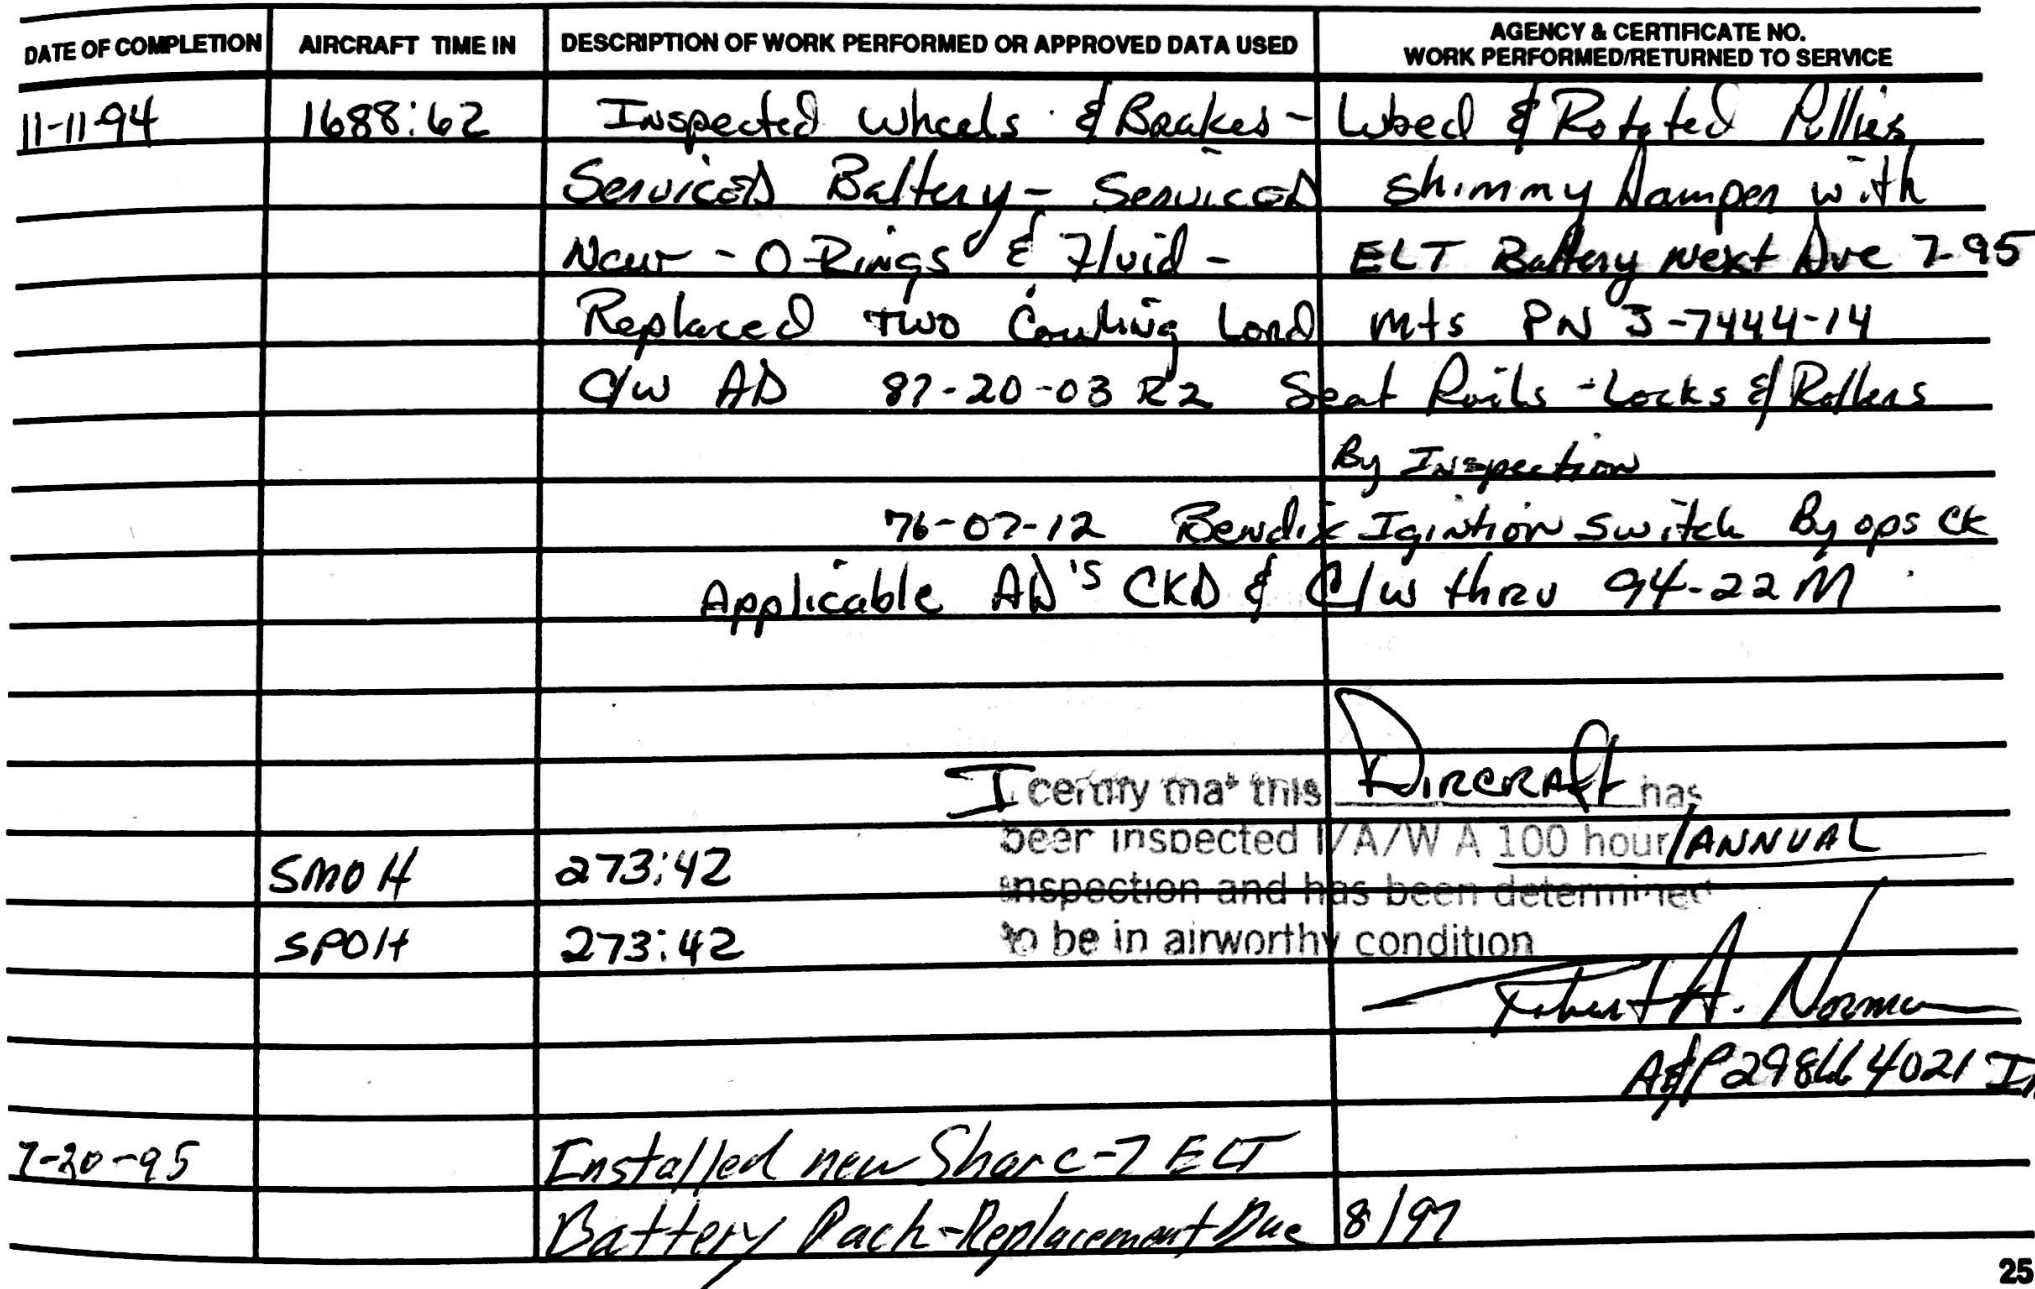 DATE OF COMPLETION AIRCRAFT TIME IN DESCRIPTION OF WORK PERFORMED OR APPROVED DATA USED AGENCY & CERTIFICATE NO.
WORK PERFORMED/RETURNED TO SERVICE
11-11-94 1688:62 Inspected Wheels & Brakes - Lubed & Rotated Pullies
Serviced Battery - Serviced Shimmy Damper with
New - O-Rings & Fluid - ELT Battery Next Due 7-95
Replaced Two Cowling Lord Mts PN J-7444-14
C/W AD 87-20-03 R2 Seat Rails - Locks & Rollers
By Inspection
76-07-12 Bendix Igintion Switch By ops ck
Applicable AD's CKD & C/W thru 94-22 M
I certify that this Aircraft has
been inspected I/A/W A 100 hour/ANNUAL
SMOH 273:42 inspection and has been determined
SPOH 273:42 to be in airworthy condition
Robert A. Norman
A&P 298664021
7-20-95 Installed new Sharc-7 ELT
Battery Pack-Replacement Due 8/97
25